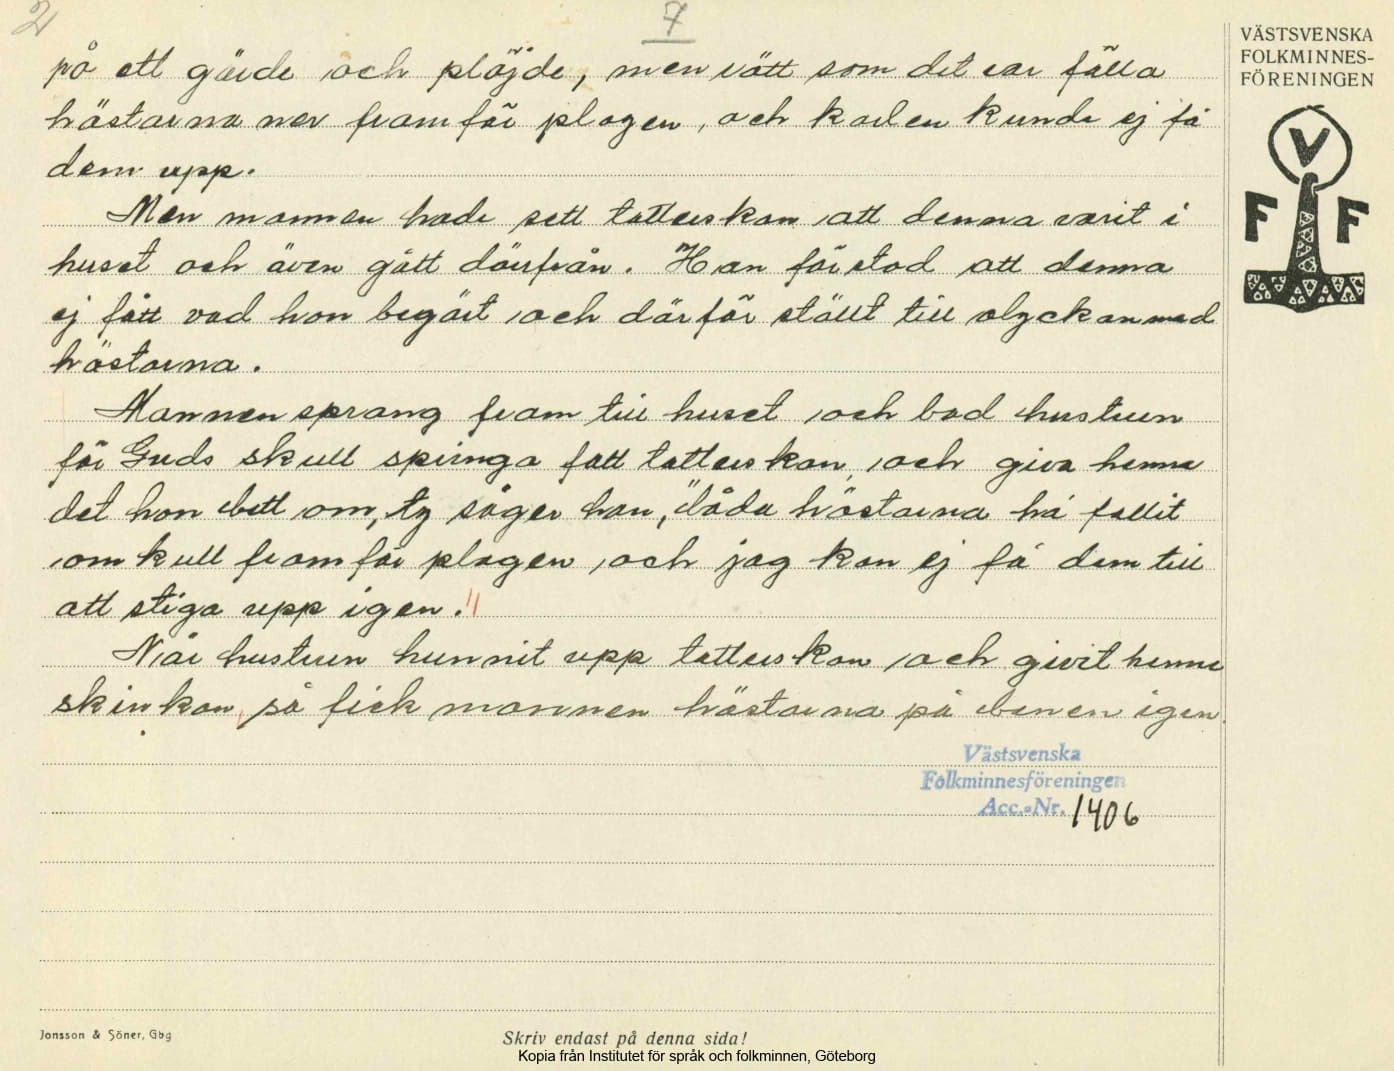 2
7
på ett gärde och plöjde, men rätt som det var fälla
hästarna ner framför plogen, och karlen kunde ej få
dem upp.
Men mannen hade sett tatterskan att denna varit i
huset och även gått därfrån. Han förstod att denna
ej fått vad hon begärt och därför ställt till olyckan med
hästarna.
Mannen sprang fram till huset och bad hustrun
för Guds skull springa fatt tatterskan, och giva henne
det hon bett om, ty säger han, "båda hästarna há fallit
omkull framför plogen, och jag kan ej få dem till
att stiga upp igen."
När hustrun hunnit upp tatterskan, och givit henne
skinkan, så fick mannen hästarna på benen igen.
Västsvenska
Folkminnesföreningen
Acc.-Nr. 1406
VÄSTSVENSKA
FOLKMINNES-
FÖRENINGEN
V
F F
Jonsson & Söner, Gbg
Skriv endast på denna sida!
Kopia från Institutet för språk och folkminnen, Göteborg